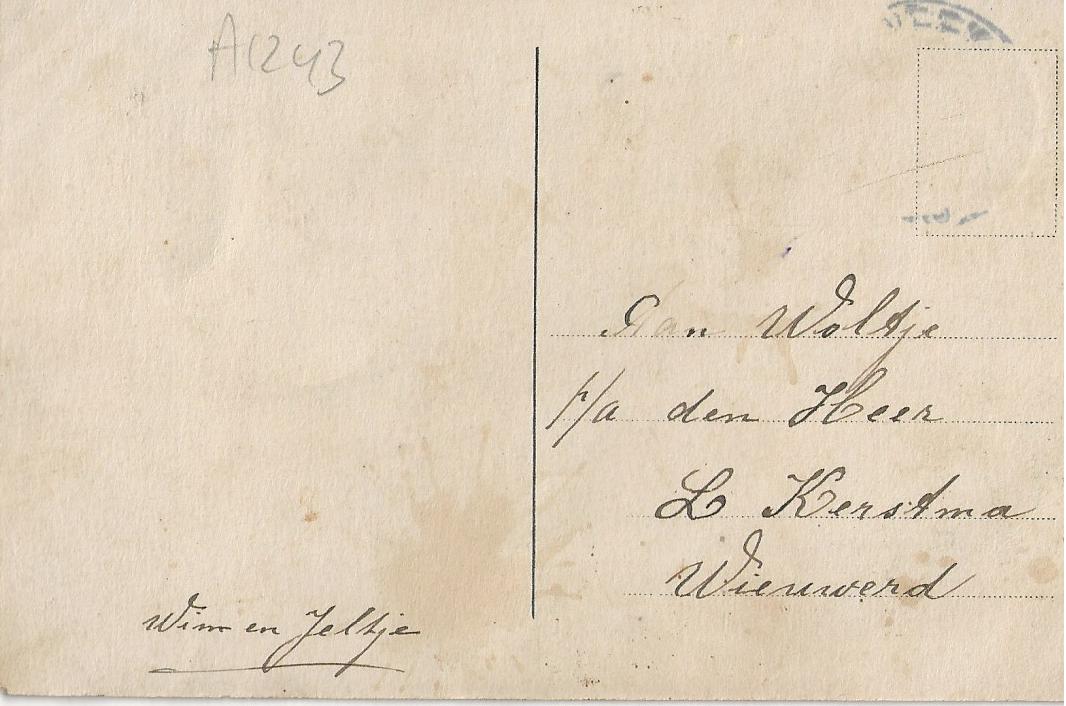 A1243
Aan Woltje
p/a den Heer
L Kerstma
Wieuwerd
Wim en Jeltje